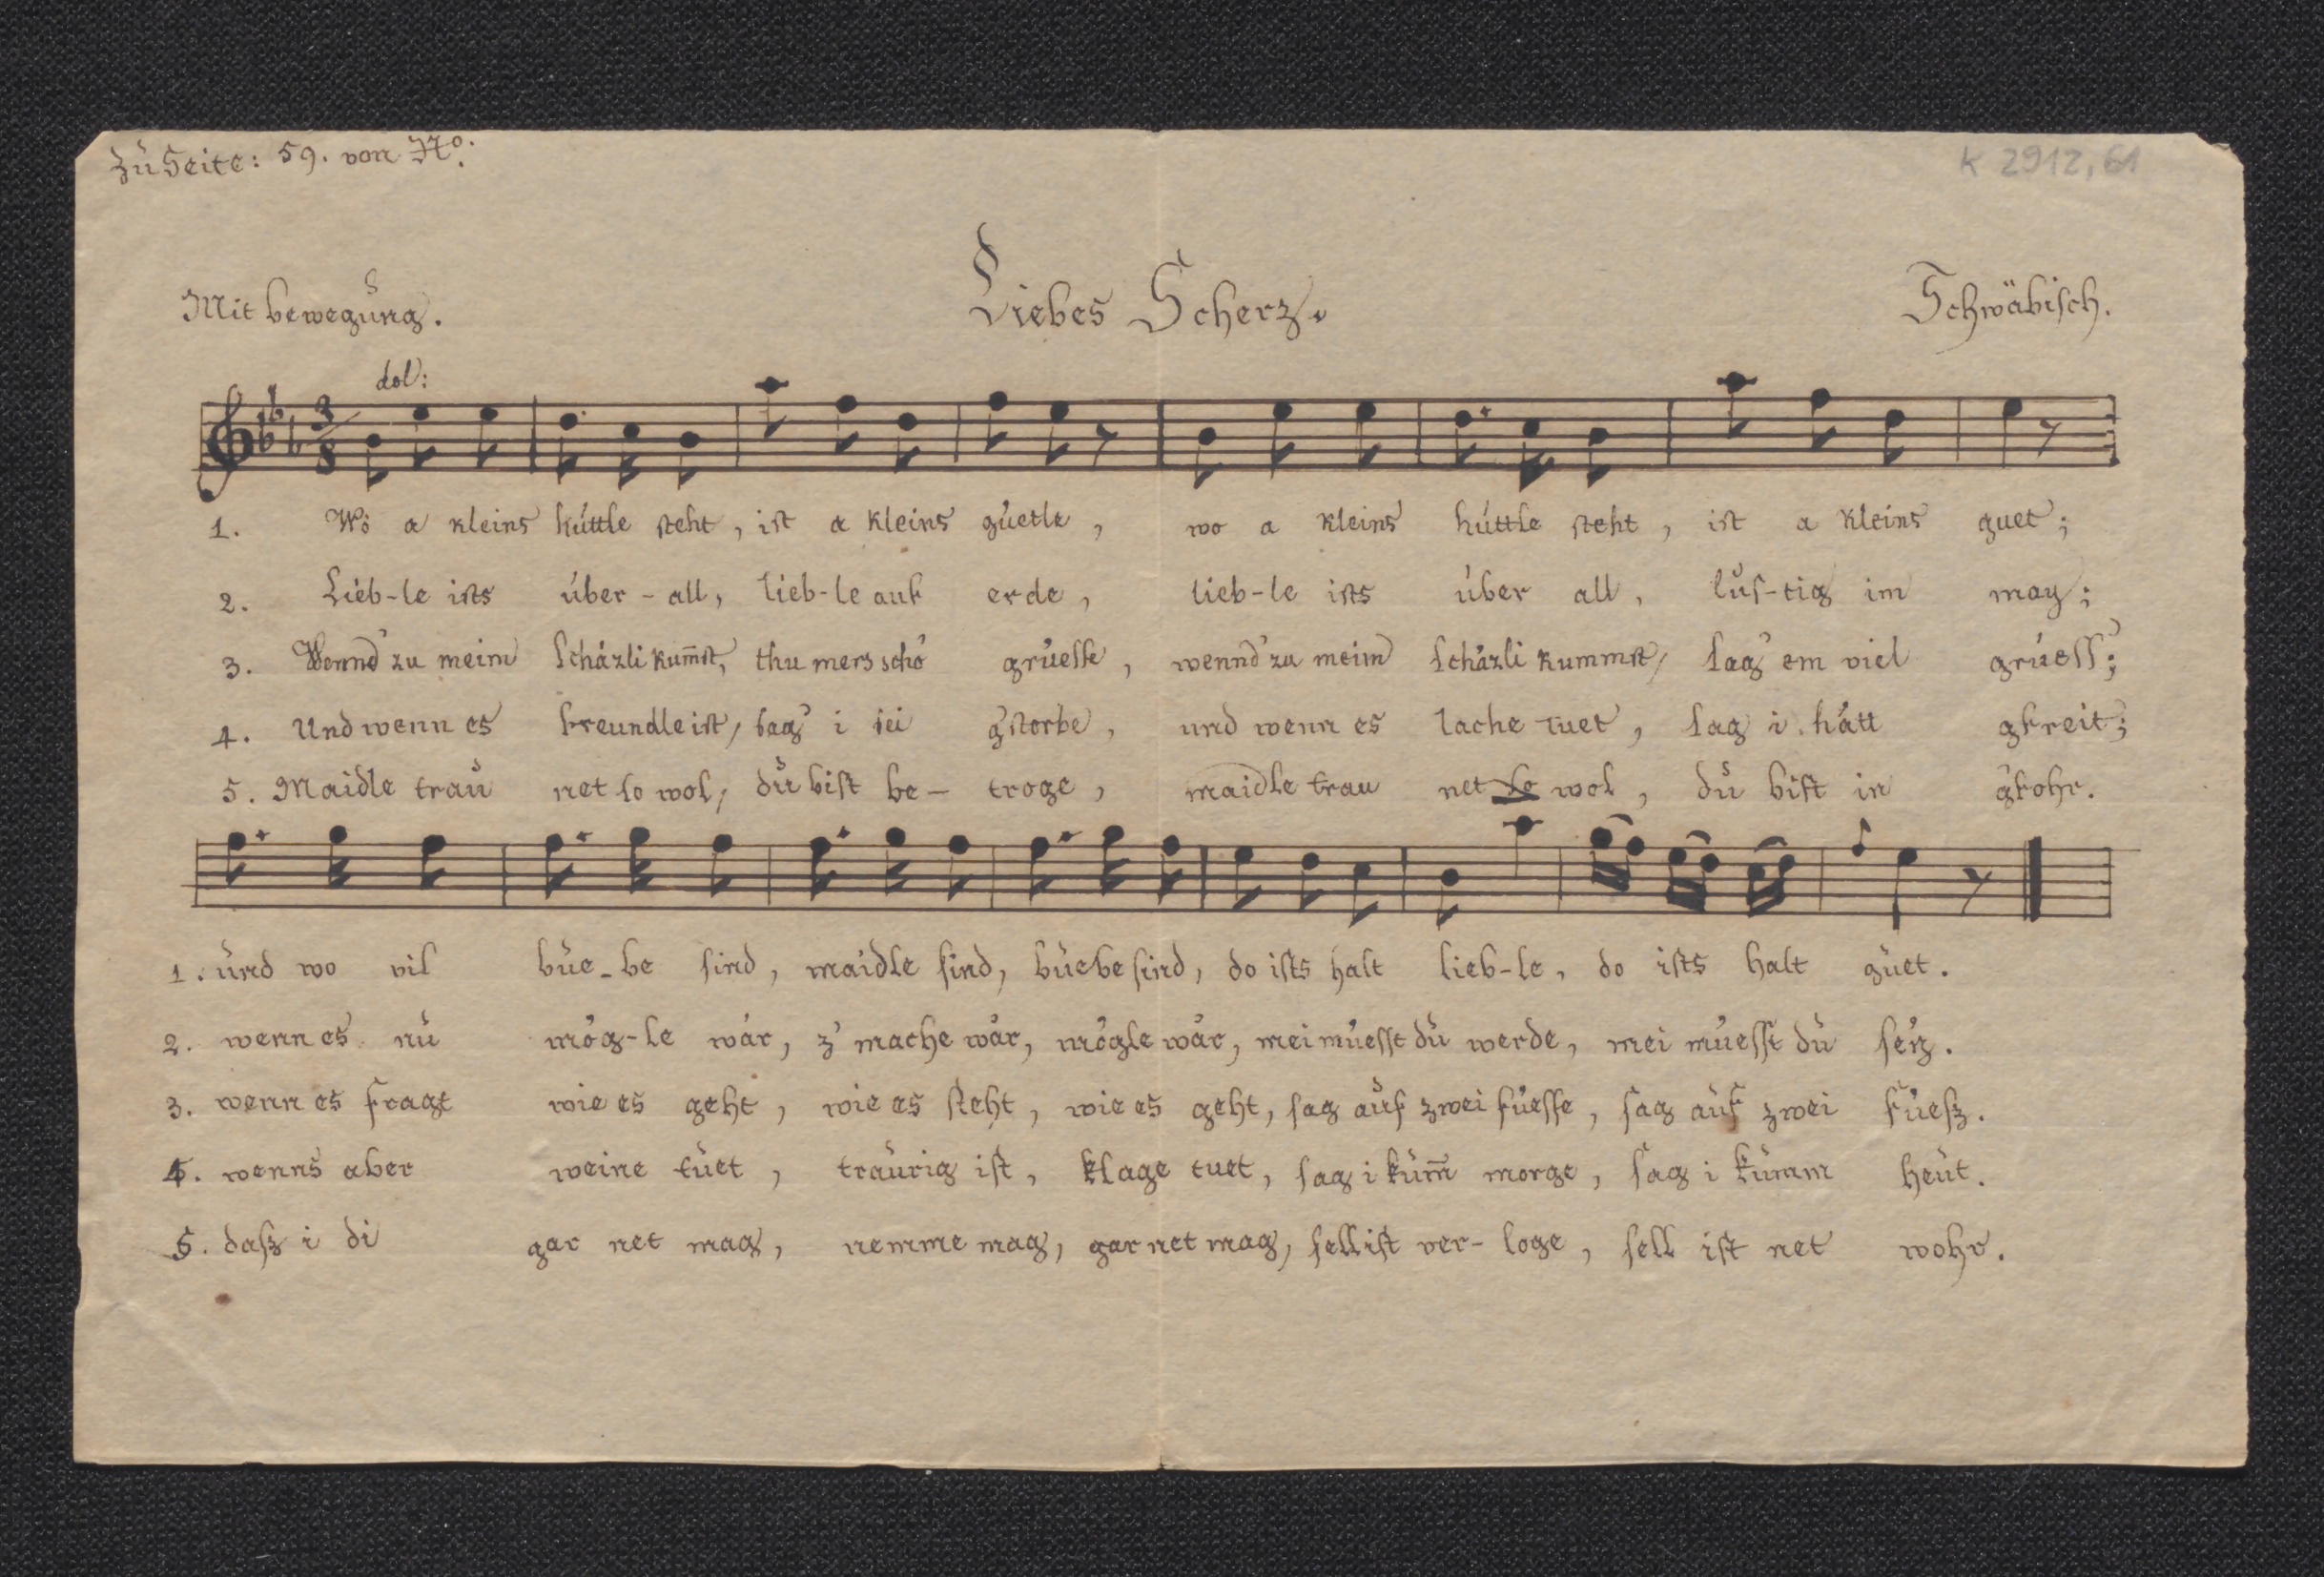 Zu Seite: 59. von No:
K 2912,61
Mit bewegung.
Liebes Scherz.
Schwäbisch.
dol:
3/8
1. Wo a kleins hüttle steht, ist a kleins güetle, wo a kleins hüttle steht, ist a kleins guet;
2. Lieb-le ists über-all, lieb-le auf erde, lieb-le ists über all, lus-tig im may;
3. Wennd' zu meim schäzli kum̅st, thu mers scho grüesse, wennd' zu meim schäzli kummst, sag' em viel grüess;
4. Und wenn es freundle ist, sag' i sei g'storbe, und wenn es lache tuet, sag i hätt gfreit;
5. Maidle trau net so wol, du bist be-troge, maidle trau net so wol, du bist in g'fohr.
1. und wo vil bue-be sind, maidle sind, buebe sind, do ists halt lieb-le, do ists halt guet.
2. wenn es nu mög-le wär, z' mache wär, mögle wär, mei müesst du werde, mei müesst du seÿ.
3. wenn es fragt wie es geht, wie es steht, wie es geht, sag auf zwei füesse, sag auf zwei füesz.
4. wenns aber weine tuet, traurig ist, klage tuet, sag i kum̅ morge, sag i kumm heut.
5. dasz i di gar net mag, nemme mag, gar net mag, sell ist ver-loge, sell ist net wohr.